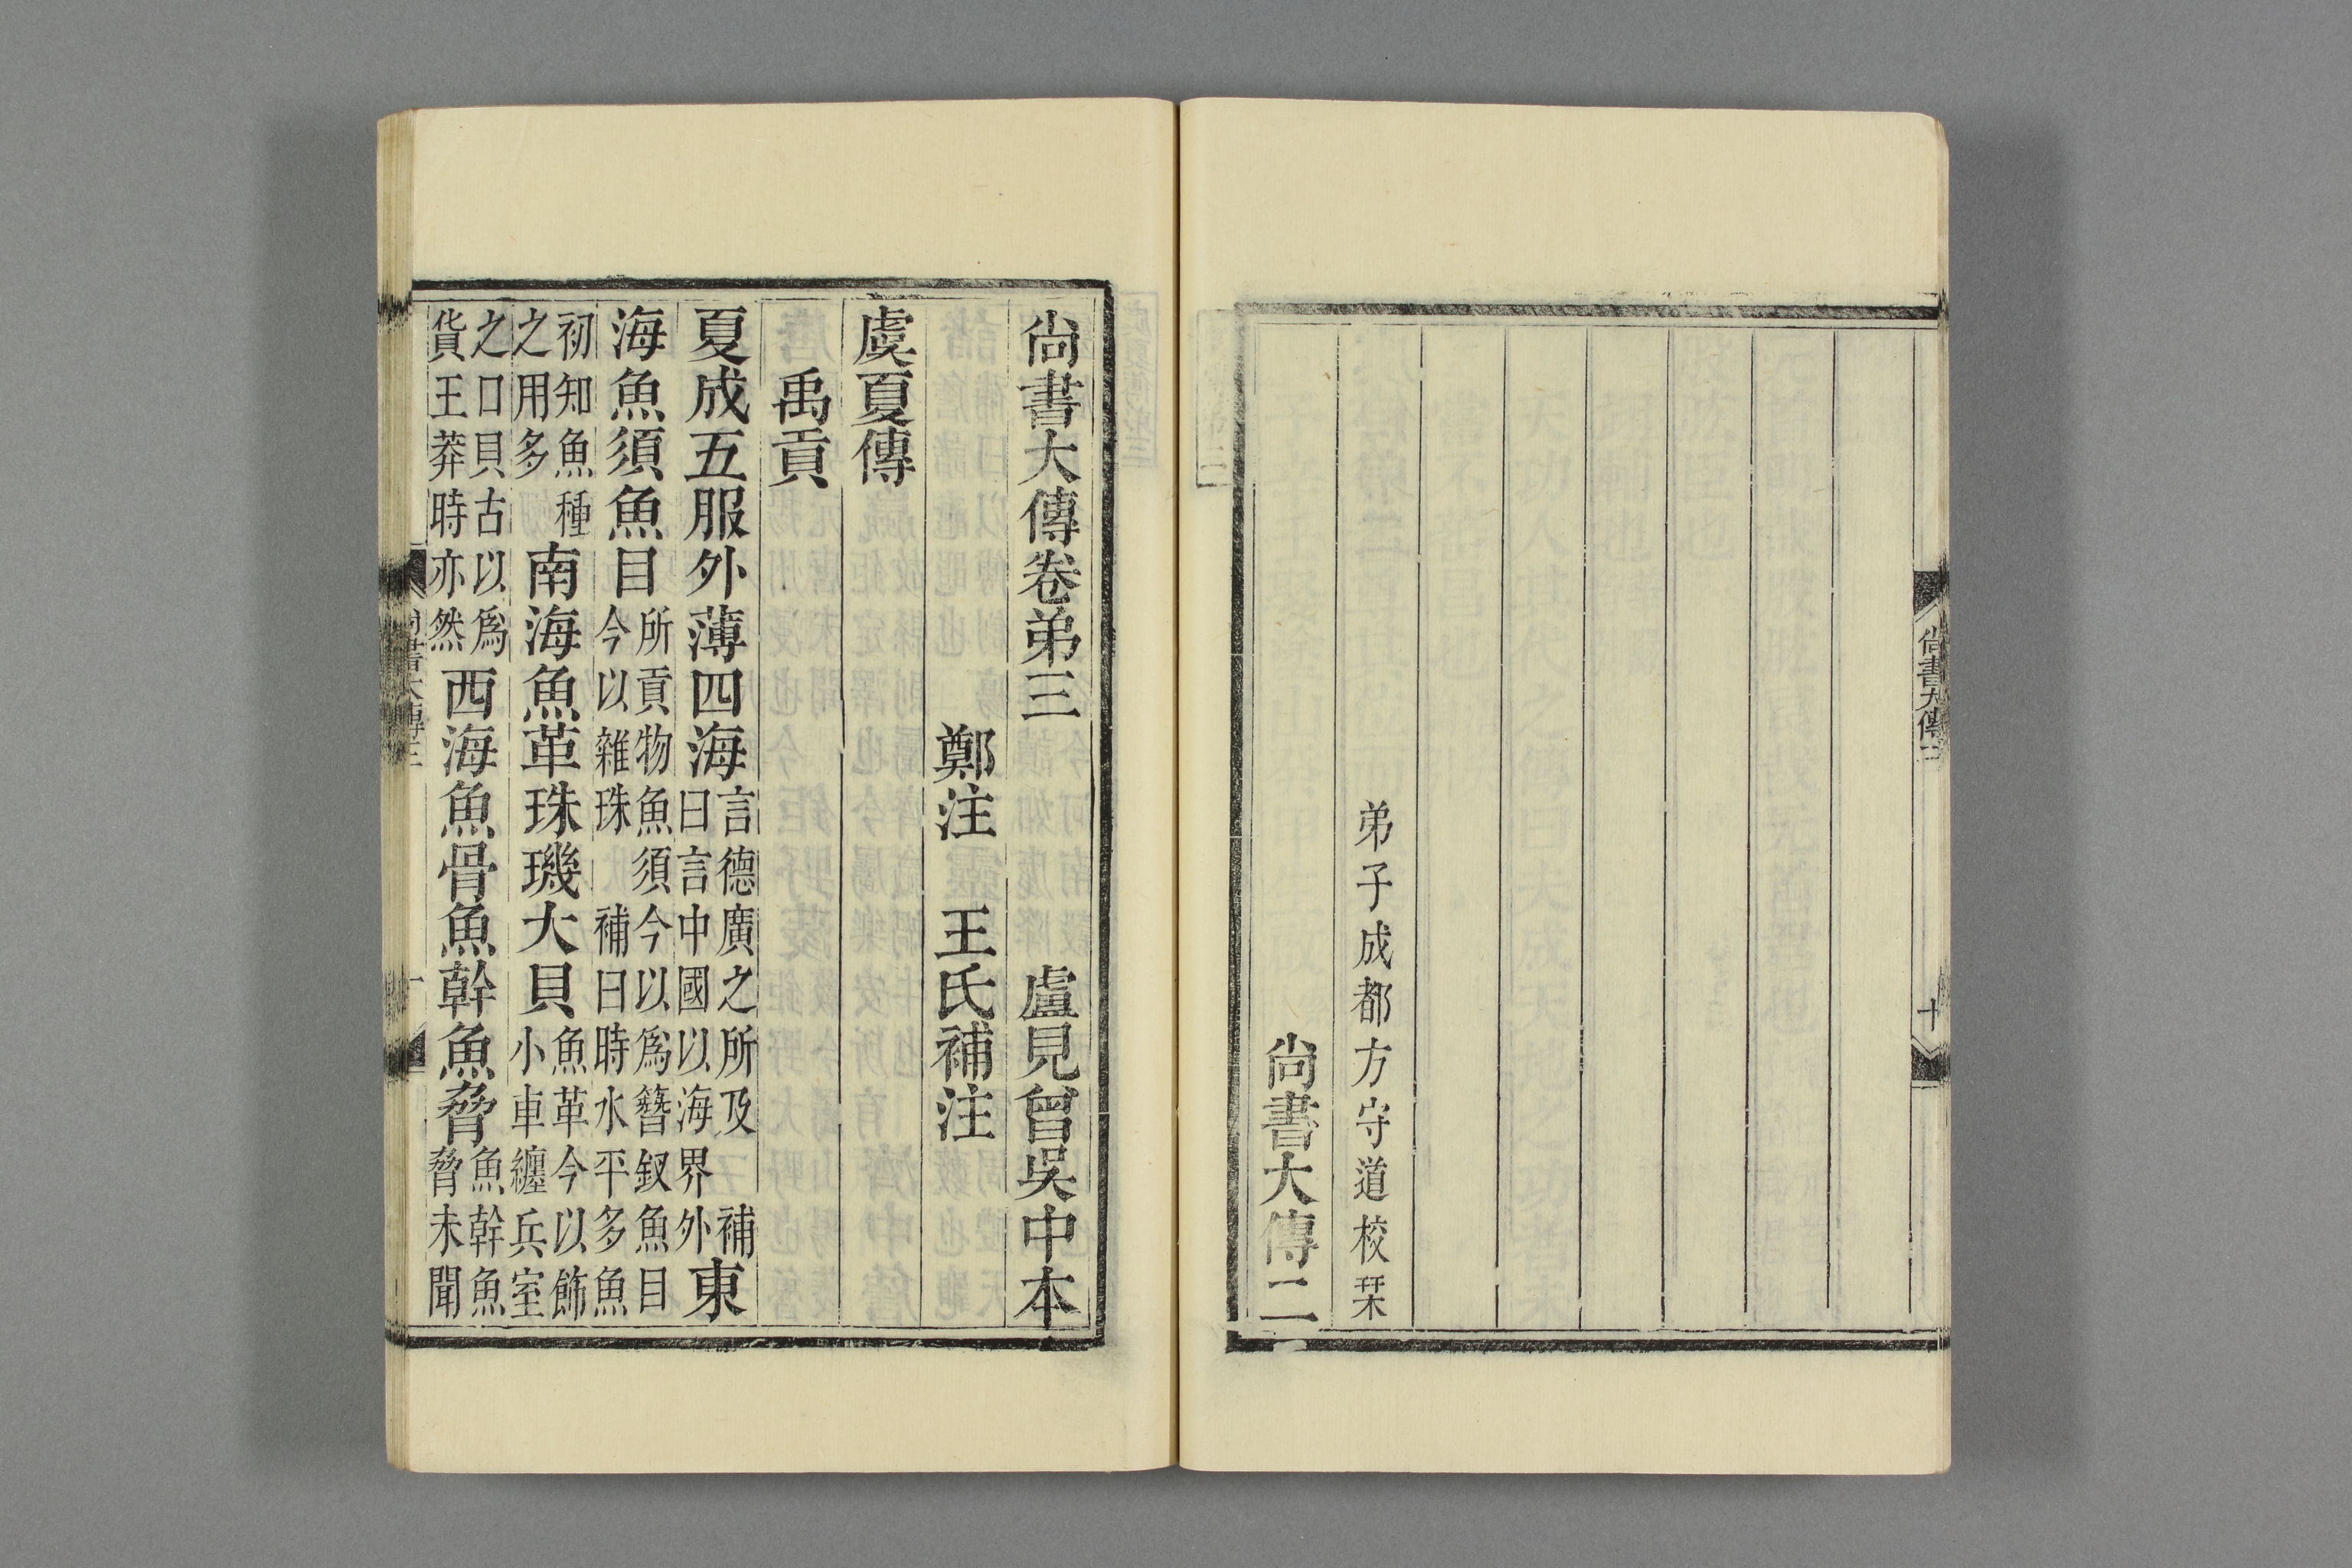 尚書大傳二
十
弟子成都方守道校栞
尚書大傳二
尚書大傳卷弟三 盧見曾吳中本
鄭注 王氏補注
虞夏傳
禹貢
夏成五服外薄四海言德廣之所及 補曰言中國以海界外東
海魚須魚目所貢物魚須今以爲簪釵魚目今以雜珠 補曰時水平多魚
初知魚種之用多南海魚革珠璣大貝魚革今以飾小車纏兵室
之口貝古以爲貨王莽時亦然西海魚骨魚幹魚脅魚幹魚脅未聞
尚書大傳三
一